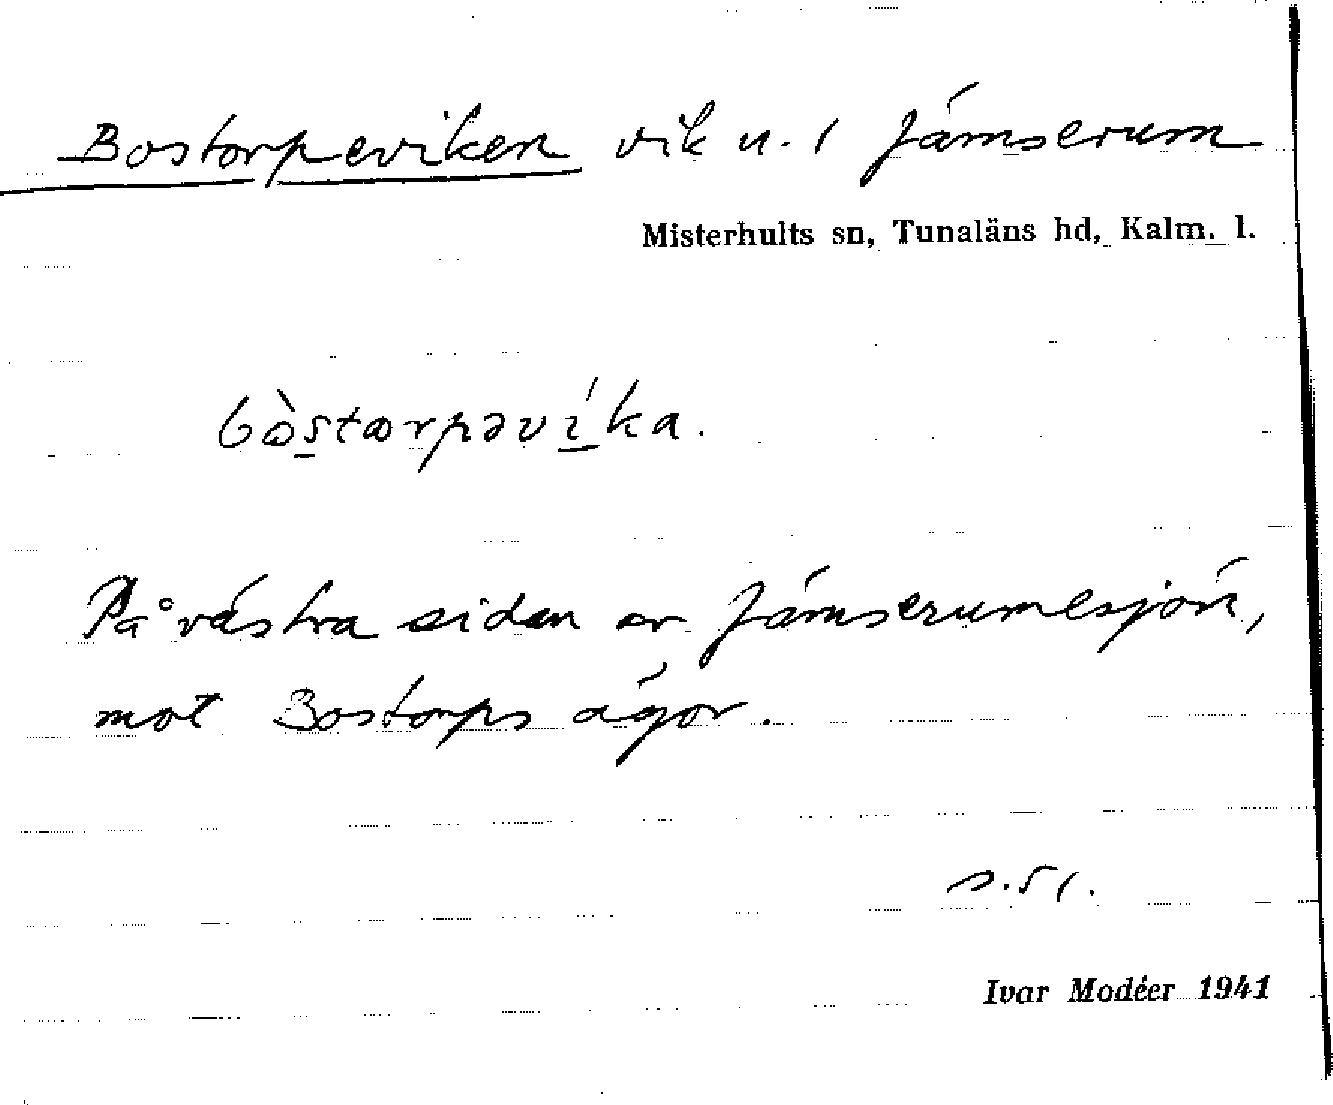 Bostorpeviken vik u. 1 Jämserum
Misterhults sn, Tunaläns hd, Kalm. l.
bòstorpəvíka.
På västra sidan av Jämserumesjön,
mot Bostorps ägor.
s. 51.
Ivar Modéer 1941